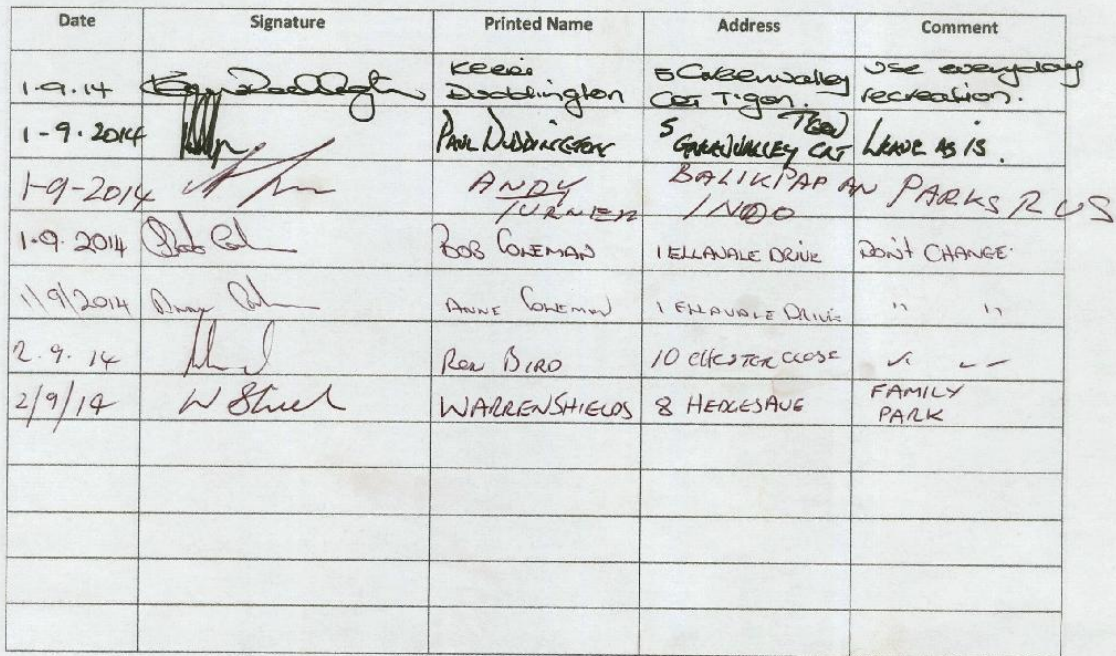 Date Signature Printed Name Address Comment
1.9.14 Kerri Doddington 5 Greenvalley Crt T'gon. Use everyday recreation.
1-9.2014 Paul Duddington 5 Greenvalley Crt T'gon Leave as is.
1-9-2014 Andy Turner Balikpapan Indo Parks R Us
1.9.2014 Bob Coleman 1 Ellavale Drive Don't Change.
1/9/2014 Anne Coleman 1 Ellavale Drive " "
2.9.14 Ron Bird 10 Chester Close
2/9/14 Warren Shields 8 Hedges Ave Family Park